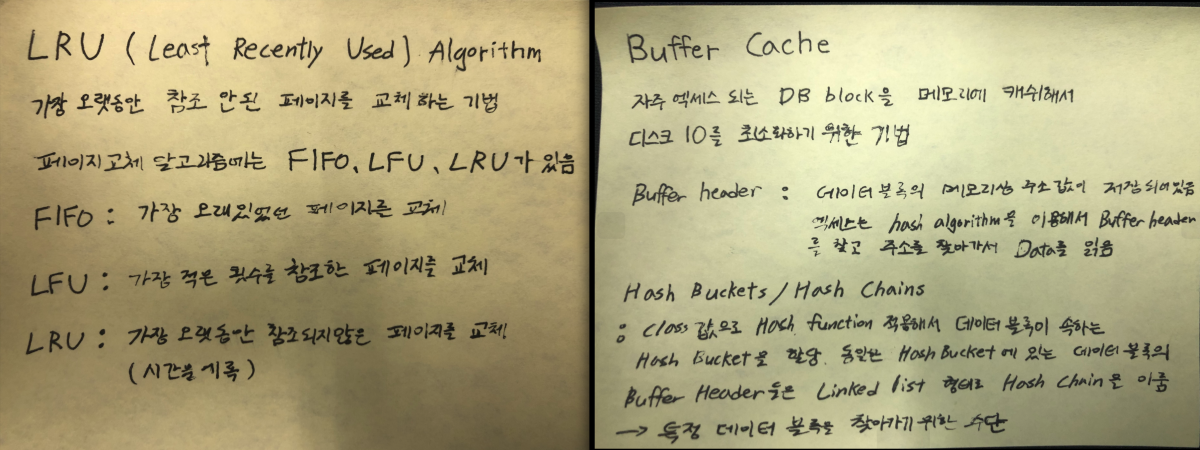 LRU (Least Recently Used) Algorithm
가장 오랫동안 참조 안된 페이지를 교체하는 기법
페이지교체 알고리즘에는 FIFO, LFU, LRU가 있음
FIFO : 가장 오래있었던 페이지를 교체
LFU : 가장 적은 횟수를 참조한 페이지를 교체
LRU : 가장 오랫동안 참조되지않은 페이지를 교체
(시간을 체크)
Buffer Cache
자주 엑세스 되는 DB block을 메모리에 캐쉬해서
디스크 IO를 최소화하기 위한 기법
Buffer header : 데이터 블록의 메모리상 주소값이 저장되어있음
엑세스는 hash algorithm을 이용해서 Buffer header
를 찾고 주소를 찾아가서 Data를 읽음
Hash Buckets / Hash Chains
: Class 값으로 Hash function 적용해서 데이터 블록이 속하는
Hash Bucket을 할당. 동일한 Hash Bucket에 있는 데이터 블록의
Buffer Header들은 Linked list 형태로 Hash Chain을 이룸
→ 특정 데이터 블록을 찾아가기 위한 수단